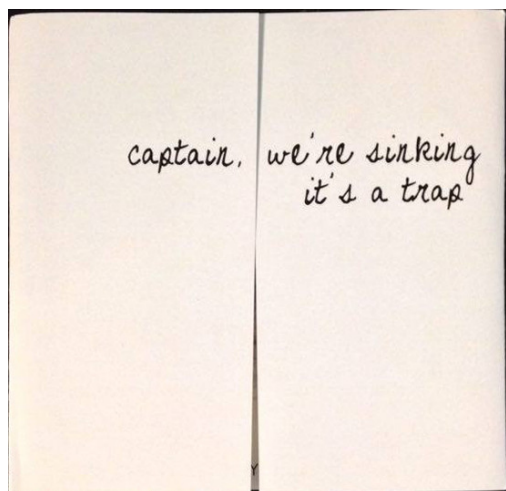 captain, we're sinking
it's a trap
Y